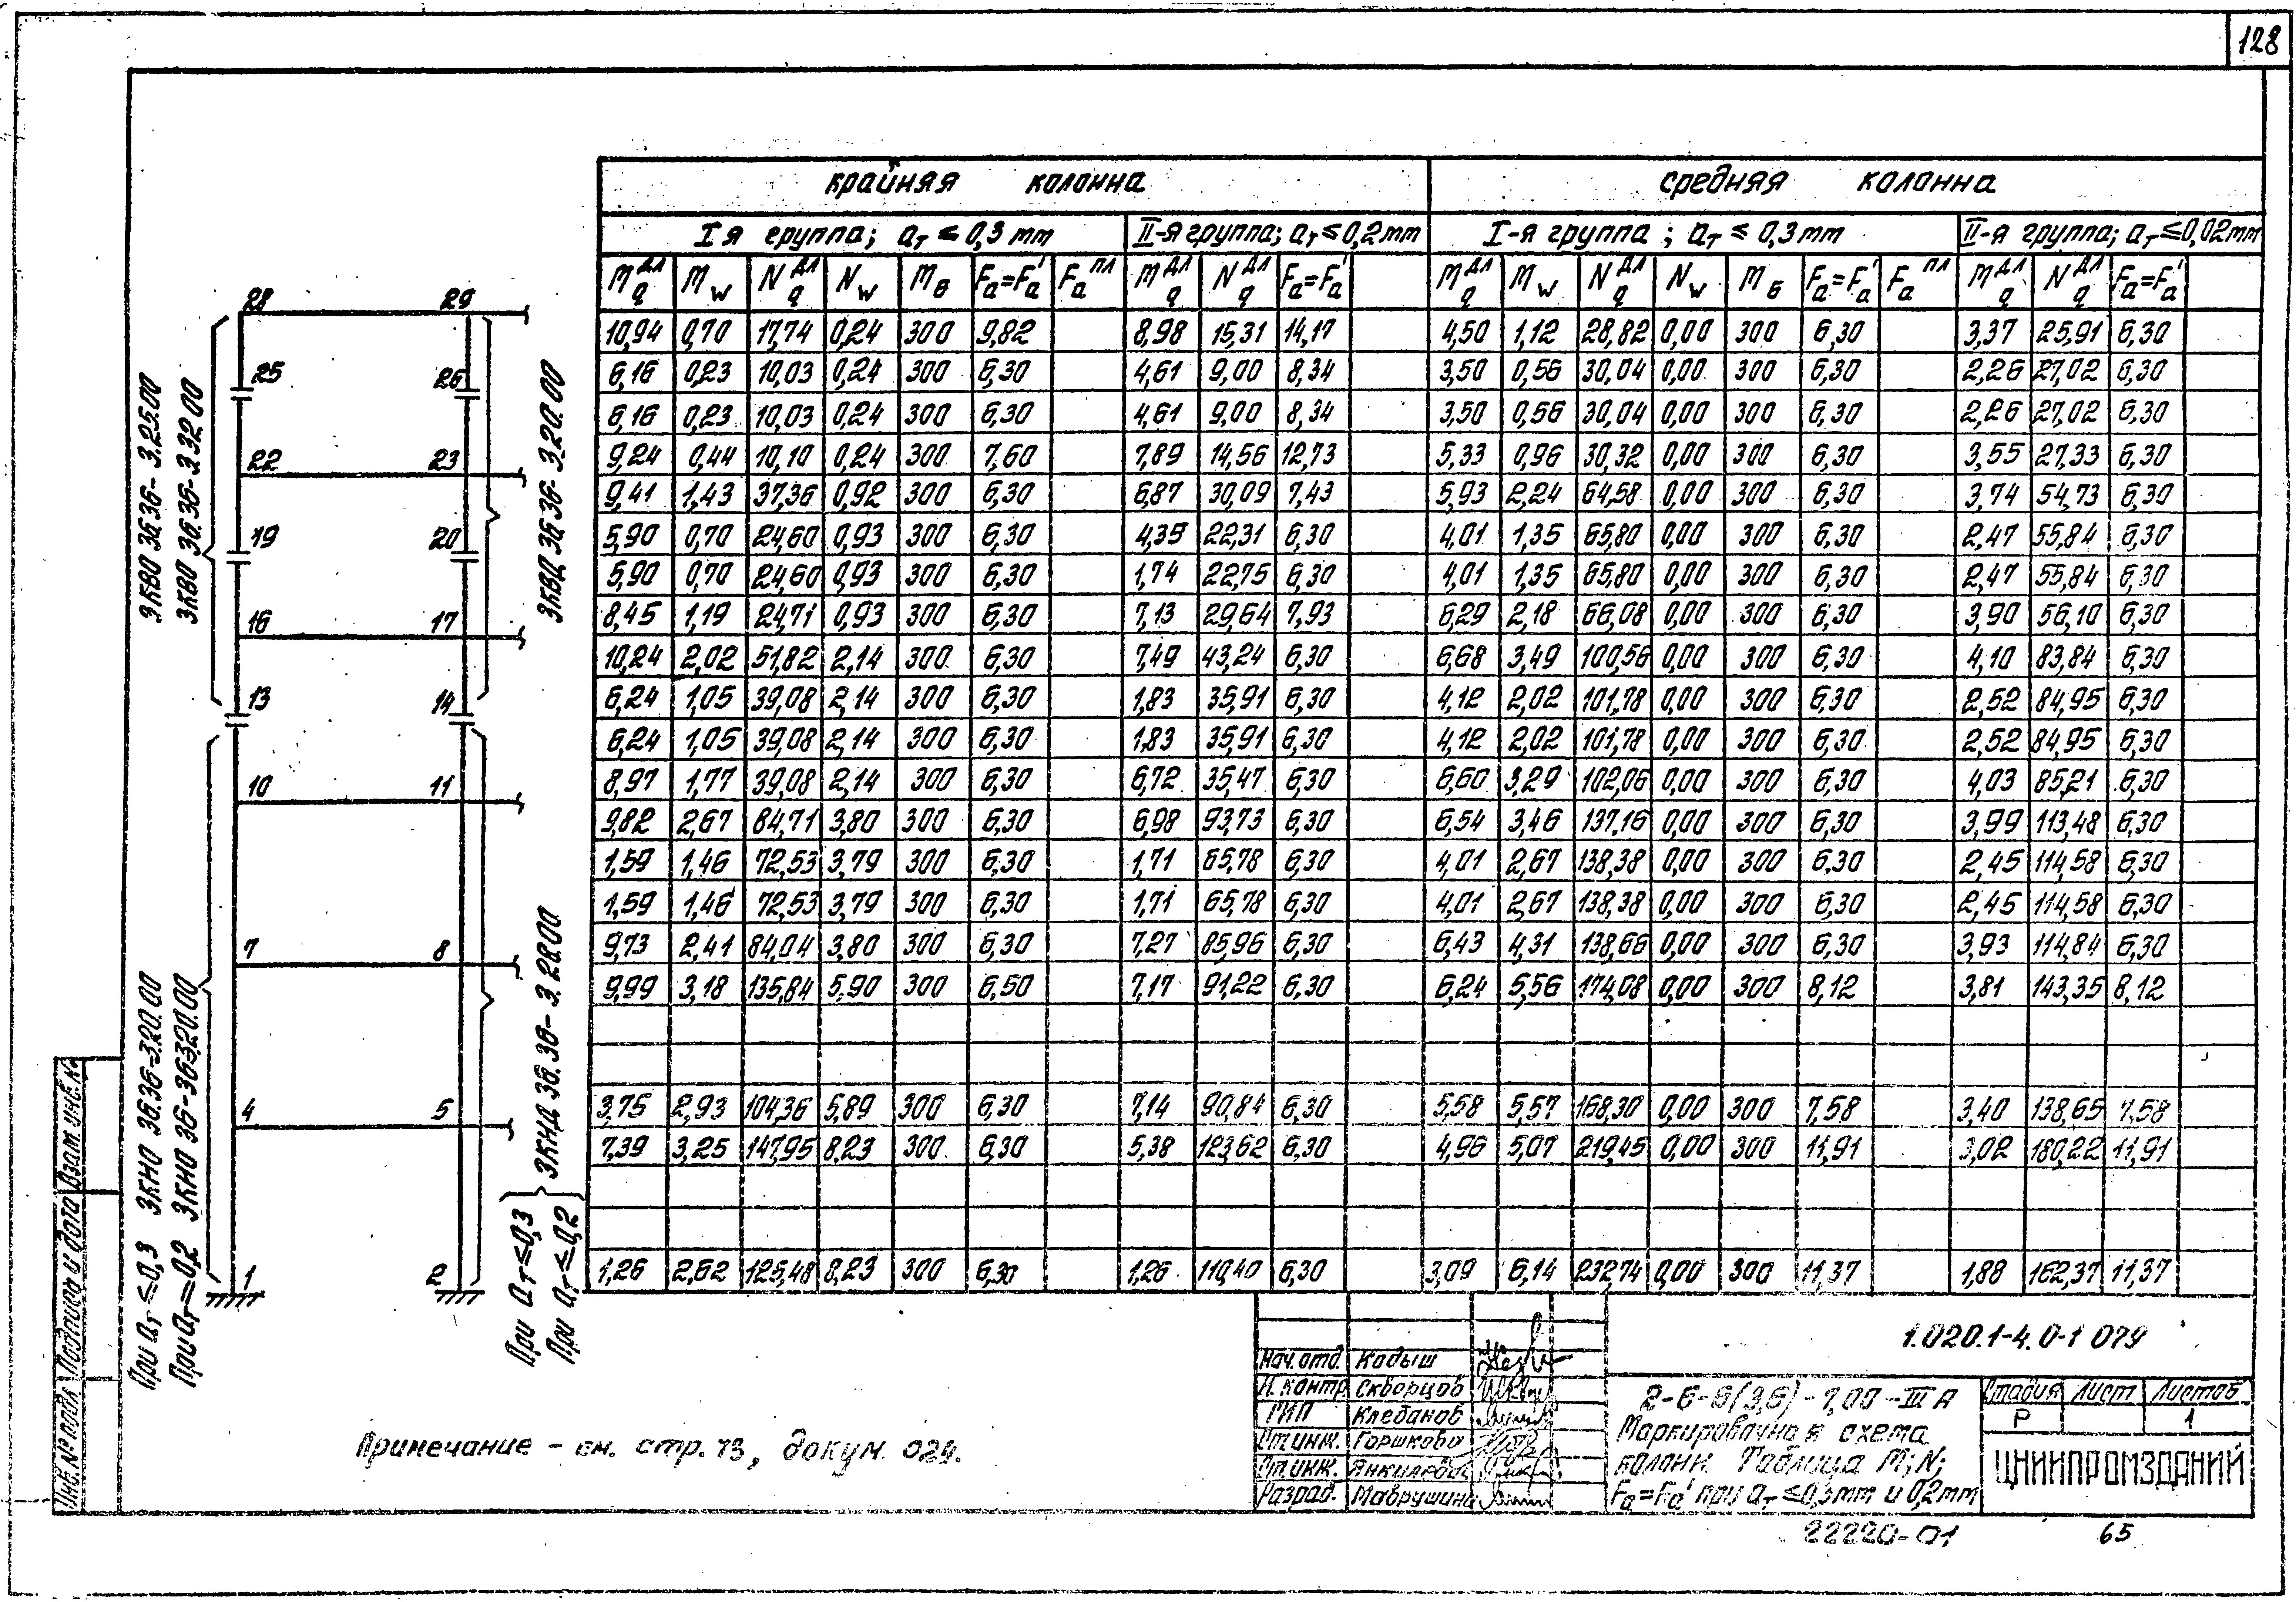 128
крайняя колонна средняя колонна
I я группа; aт ≤ 0,3 mm II-я группа; aт ≤ 0,2 mm I-я группа; aт ≤ 0,3 mm II-я группа; aт ≤ 0,02 mm
M дл q M w N дл q N w M б Fa=Fa' Fa пл M дл q N дл q Fa=Fa' M дл q M w N дл q N w M б Fa=Fa' Fa пл M дл q N дл q Fa=Fa'
10,94 0,70 17,74 0,24 300 9,82 8,98 15,31 14,17 4,50 1,12 28,82 0,00 300 6,30 3,37 25,91 6,30
6,16 0,23 10,03 0,24 300 6,30 4,61 9,00 8,34 3,50 0,56 30,04 0,00 300 6,30 2,26 27,02 6,30
6,16 0,23 10,03 0,24 300 6,30 4,61 9,00 8,34 3,50 0,56 30,04 0,00 300 6,30 2,26 27,02 6,30
9,24 0,44 10,10 0,24 300 7,60 7,89 14,56 12,73 5,33 0,96 30,32 0,00 300 6,30 3,55 27,33 6,30
9,41 1,43 37,36 0,92 300 6,30 6,87 30,09 7,43 5,93 2,24 64,58 0,00 300 6,30 3,74 54,73 6,30
5,90 0,70 24,60 0,93 300 6,30 4,35 22,31 6,30 4,01 1,35 65,80 0,00 300 6,30 2,47 55,84 6,30
5,90 0,70 24,60 0,93 300 6,30 1,74 22,75 6,30 4,01 1,35 65,80 0,00 300 6,30 2,47 55,84 6,30
8,45 1,19 24,71 0,93 300 6,30 7,13 29,64 7,93 6,29 2,18 66,08 0,00 300 6,30 3,90 56,10 6,30
10,24 2,02 51,82 2,14 300 6,30 7,49 43,24 6,30 6,68 3,49 100,56 0,00 300 6,30 4,10 83,84 6,30
6,24 1,05 39,08 2,14 300 6,30 1,83 35,91 6,30 4,12 2,02 101,78 0,00 300 6,30 2,52 84,95 6,30
6,24 1,05 39,08 2,14 300 6,30 1,83 35,91 6,30 4,12 2,02 101,78 0,00 300 6,30 2,52 84,95 6,30
8,97 1,77 39,08 2,14 300 6,30 6,72 35,47 6,30 6,60 3,29 102,06 0,00 300 6,30 4,03 85,21 6,30
9,82 2,67 84,71 3,80 300 6,30 6,98 93,73 6,30 6,54 3,46 137,16 0,00 300 6,30 3,99 113,48 6,30
1,59 1,46 72,53 3,79 300 6,30 1,71 65,78 6,30 4,01 2,67 138,38 0,00 300 6,30 2,45 114,58 6,30
1,59 1,46 72,53 3,79 300 6,30 1,71 65,78 6,30 4,01 2,67 138,38 0,00 300 6,30 2,45 114,58 6,30
9,73 2,41 84,04 3,80 300 6,30 7,27 85,96 6,30 6,43 4,31 138,66 0,00 300 6,30 3,93 114,84 6,30
9,99 3,18 135,84 5,90 300 6,50 7,17 91,22 6,30 6,24 5,56 174,08 0,00 300 8,12 3,81 143,35 8,12
3,75 2,93 104,36 5,89 300 6,30 7,14 90,84 6,30 5,58 5,57 168,30 0,00 300 7,58 3,40 138,65 7,58
7,39 3,25 147,95 8,23 300 6,30 5,38 123,62 6,30 4,96 5,07 219,45 0,00 300 11,91 3,02 180,22 11,91
1,26 2,62 125,48 8,23 300 6,30 1,26 110,40 6,30 3,09 6,14 232,74 0,00 300 11,37 1,88 162,37 11,37
28 29
25 26
22 23
19 20
16 17
13 14
10 11
7 8
4 5
1 2
3КВО 36.36-3.25.00
3КВО 36.36-3.32.00
3КВД 36.36-3.20.00
При aт ≤ 0,3 3КНО 36.36-3.20.00
При aт = 0,2 3КНО 36-36.3.20.00
3КНД 36.36-3.28.00
При aт ≤ 0,3
При aт ≤ 0,2
Инв. № подл. Подпись и дата Взам. инв. №
Примечание - см. стр. 73, докум. 029.
1.020.1-4.0-1 079
Нач. отд. Кодыш
Н. контр. Скворцов
ГИП Клебанов
Ст. инж. Горшкова
Ст. инж. Янкилевич
Разраб. Маврушина
2-6-6(3,6)-1,00-III А
Маркировочная схема
колонн. Таблица M; N;
Fa=Fa' при aт ≤ 0,3 mm и 0,2 mm
Стадия Лист Листов
Р 1
ЦНИИПРОМЗДАНИЙ
22220-01 65